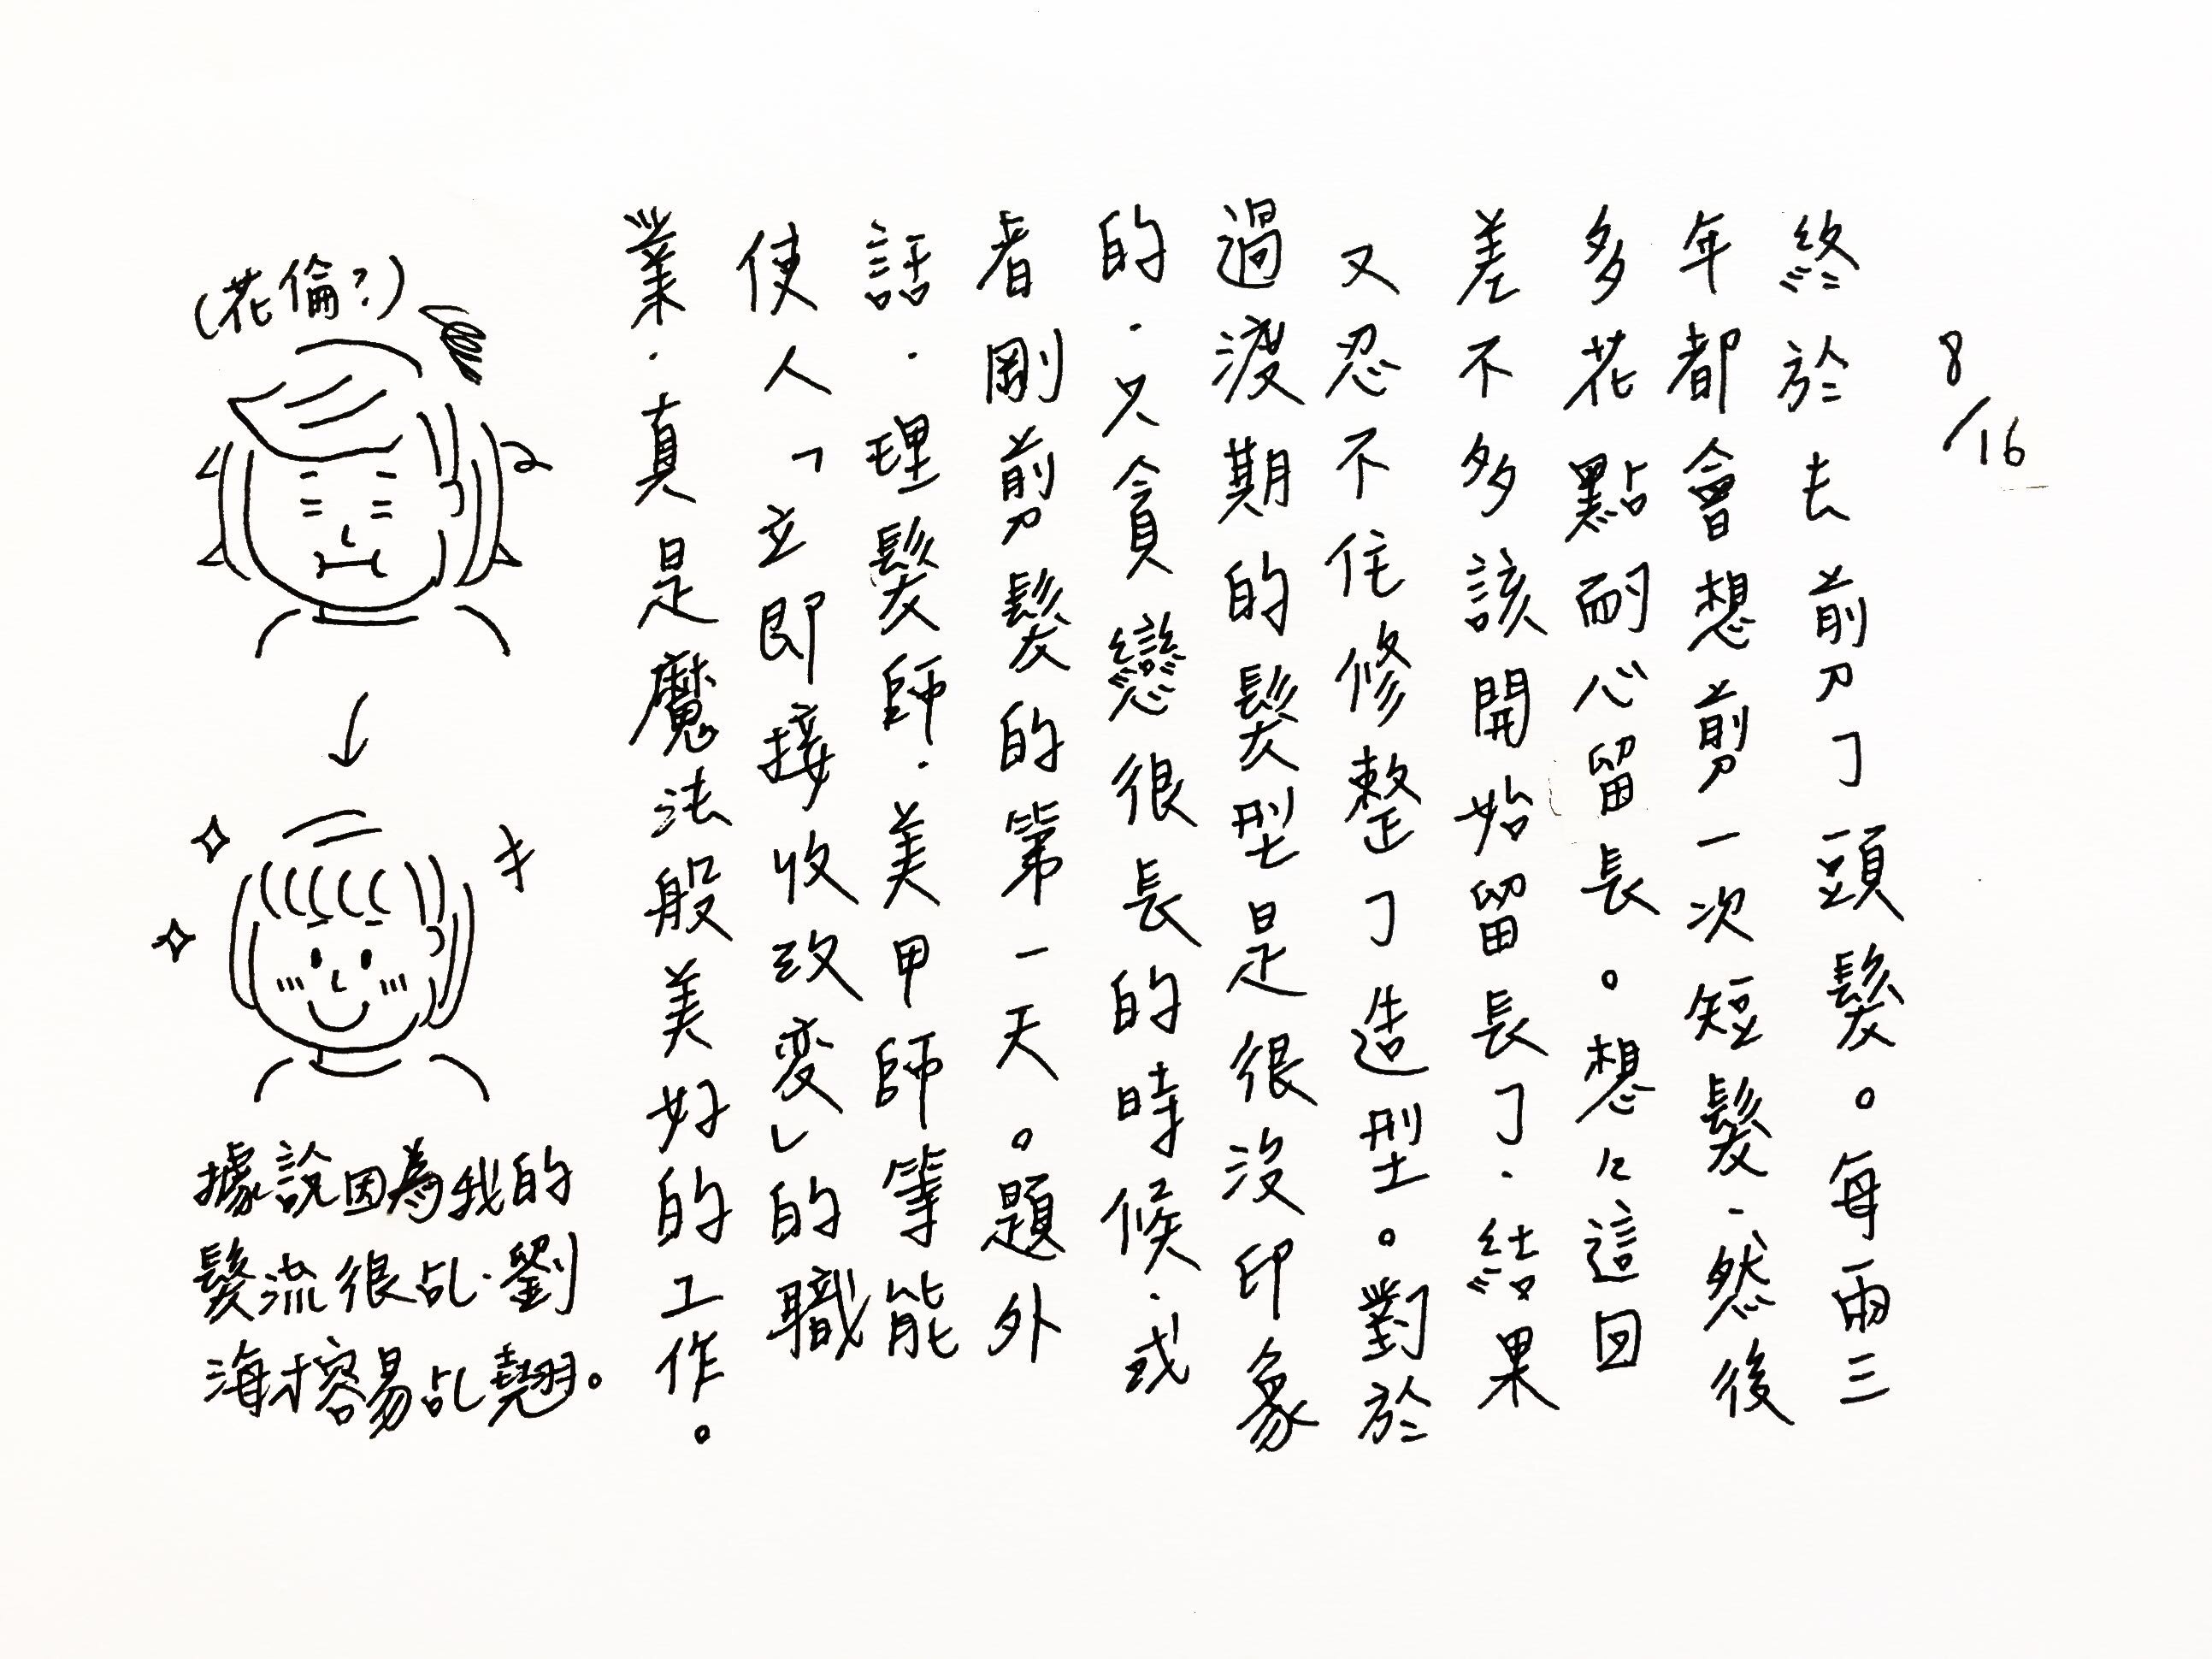 8/16
終於去剪了頭髮。每兩三
年都會想剪一次短髮、然後
多花點耐心留長。想々這回
差不多該開始留長了、結果
又忍不住修整了造型。對於
過渡期的髮型是很沒印象
的、只貪戀很長的時候、或
者剛剪髮的第一天。題外
話、理髮師、美甲師等能
使人「立即接收改变」的職
業、真是魔法般美好的工作。
(花倫?)
據說因為我的
髮流很乱、劉
海才容易乱翹。